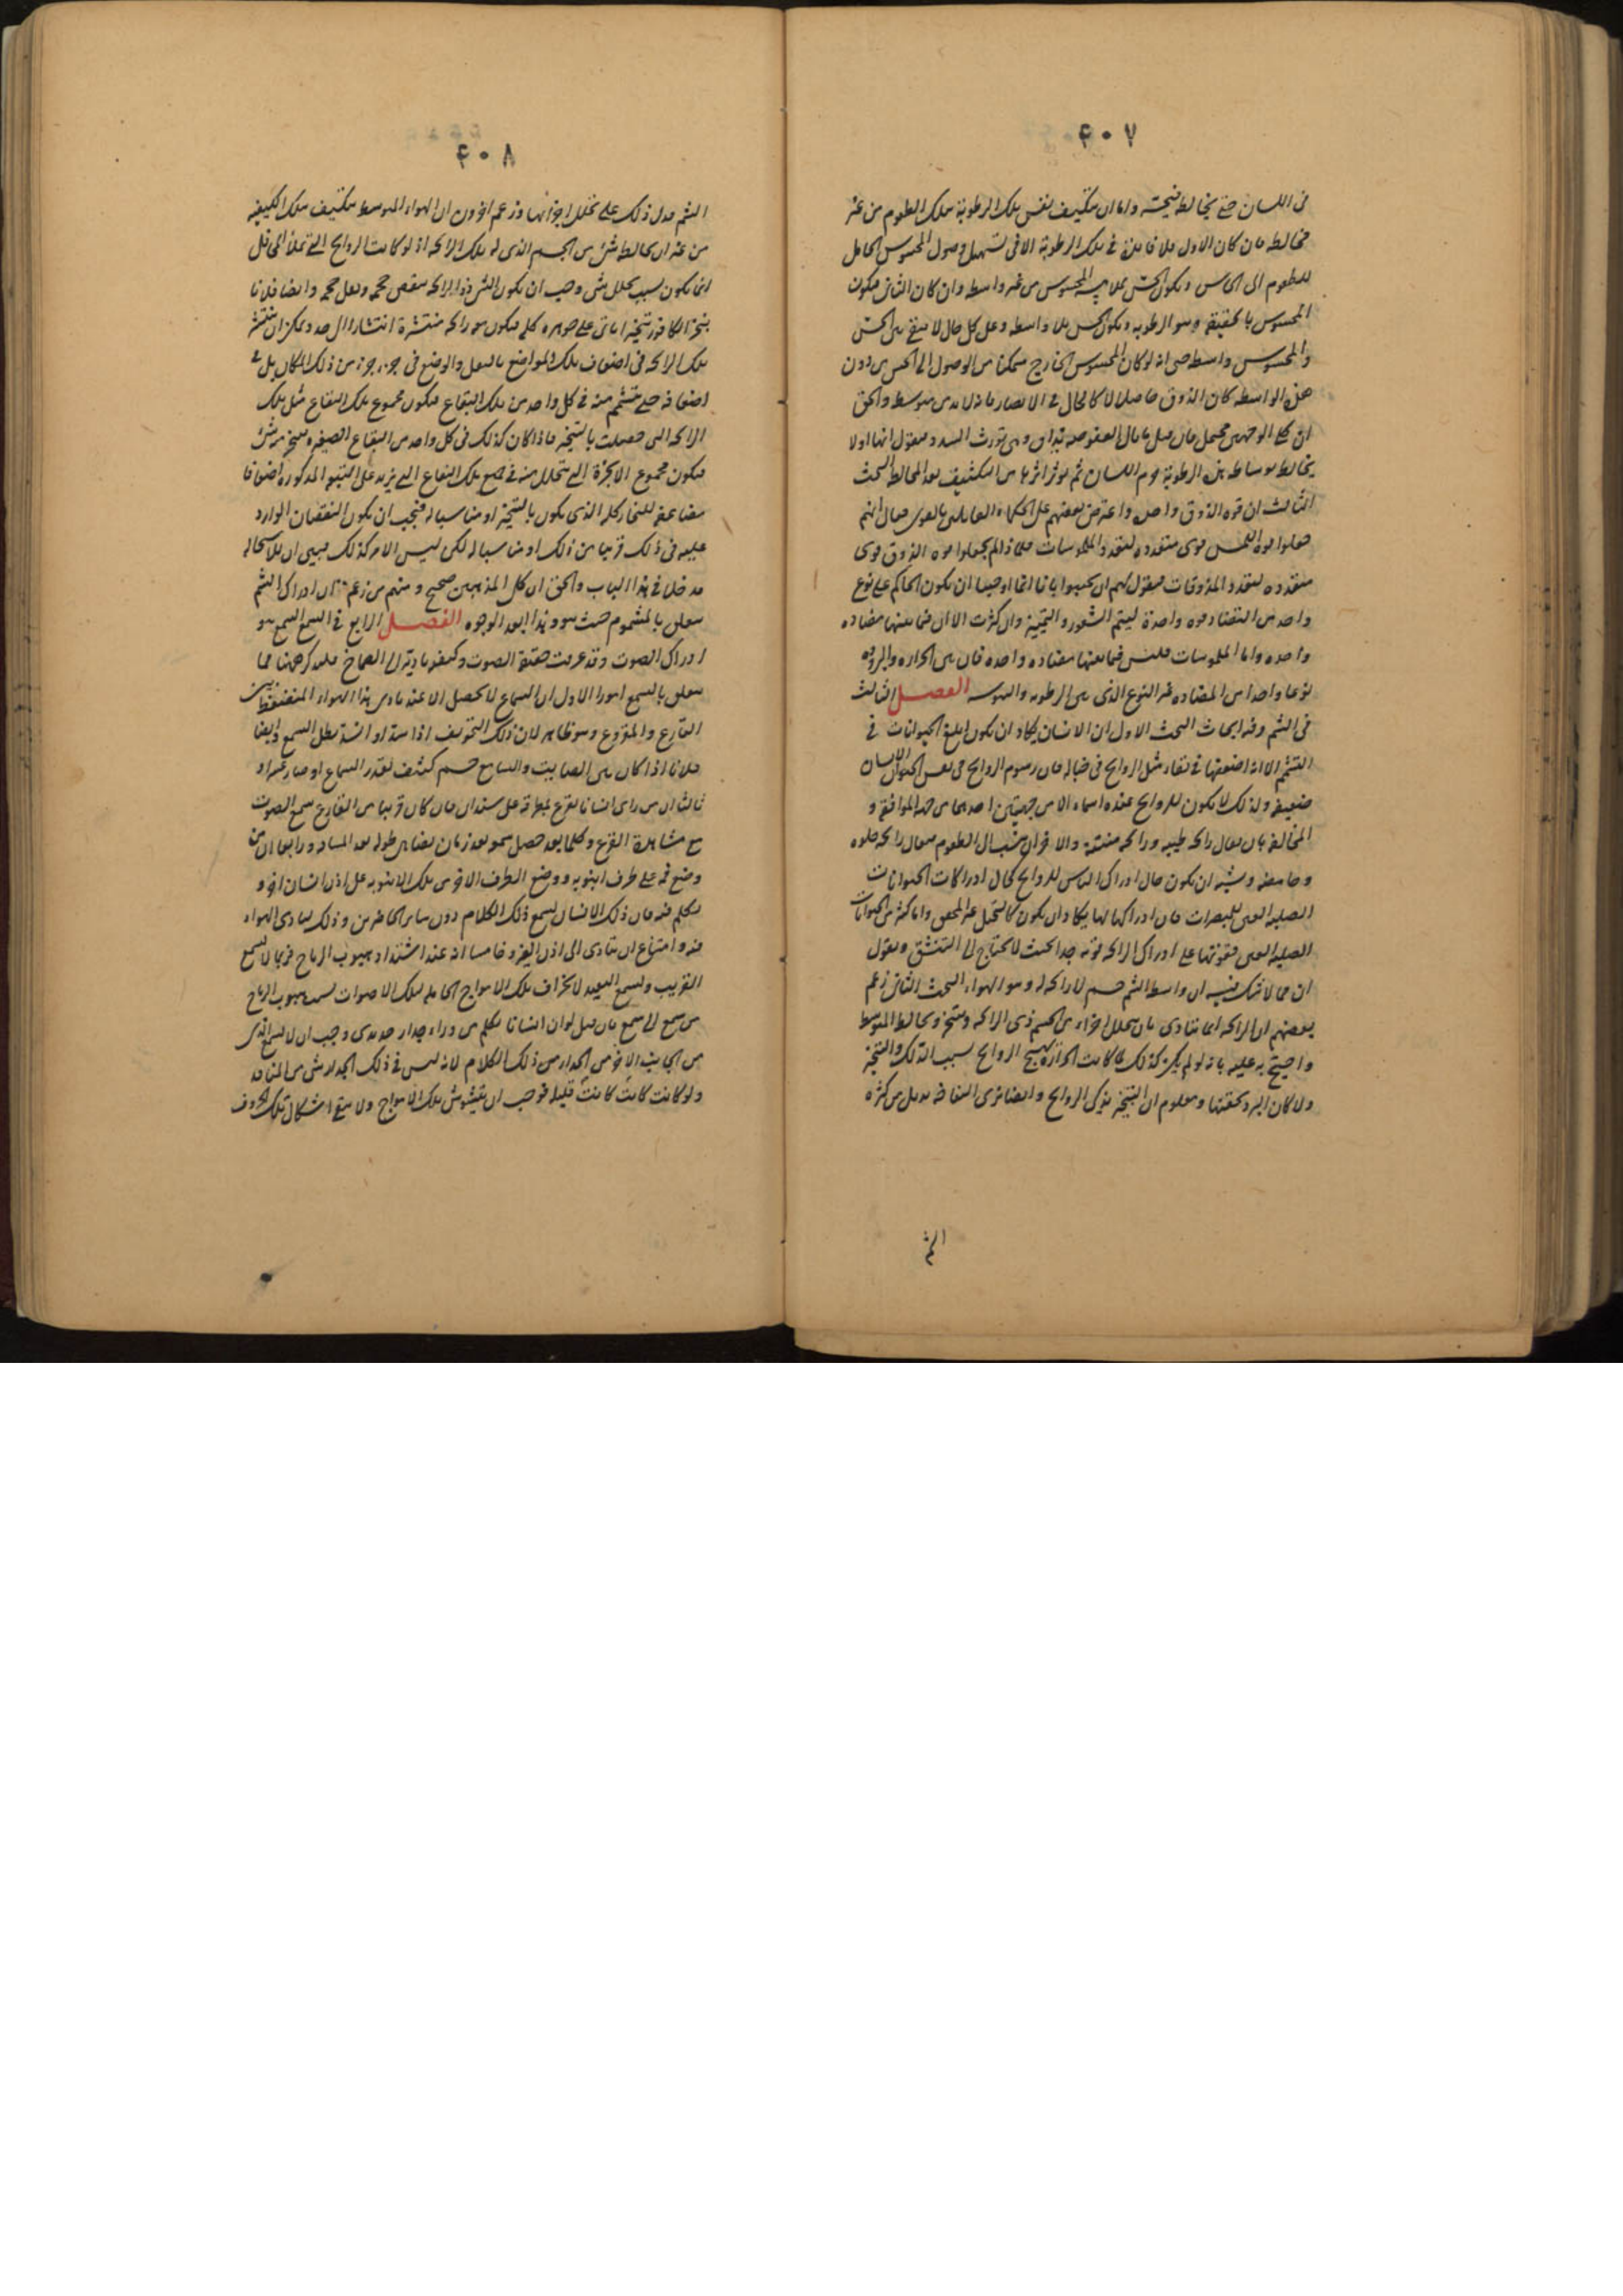 ۴۰۷
فى اللسان حتى يخالطه فيحسه واما ان يتكيف نفس تلك الرطوبة بتلك الطعوم من غير
مخالطه فان كان الاول فلا فايدة فى تلك الرطوبة الا فى تسهيل وصول المحسوس الحامل
للطعوم الى الحاس ويكون الحس بملامسة المحسوس من غير واسطه وان كان الثانى فيكون
المحسوس بالحقيقه هو الرطوبه ويكون الحس بلا واسطه وعلى كل حال لا يبقى بين الحس
والمحسوس واسطه حتى انه لو كان المحسوس الخارج متمكنا من الوصول الى الحس من دون
هذه الواسطه كان الذوق حاصلا لا كالحال فى الابصار فانه لا بد من متوسط والحق
ان كلا الوجهين محتمل فان قيل ما بال العفوصه تذاق وهى تورث السدد فنقول انها اولا
يخالط بوساطه هذه الرطوبة جرم اللسان ثم يوثر اثرها من التكثيف بعد المخالطه البحث
الثالث ان قوه الذوق واحده واعترض بعضهم على الحكماء القايلين بالقوى فقال انهم
جعلوا قوه اللمس قوى متعدده لتعدد الملموسات فلماذا لم يجعلوا قوه الذوق قوى
متعدده لتعدد المذوقات فنقول لهم ان يجيبوا بانا انما اوجبنا ان يكون الحاكم على نوع
واحد من التضاد قوه واحدة ليتم الشعور والتمييز وان كثرت الالوان فما بينها مضاده
واحده واما الملموسات فليس فيما بينها مضاده واحده فان بين الحراره والبروده
نوعا واحدا من المضاده غير النوع الذى بين الرطوبه واليبوسه الفصل الثالث
فى الشم وفيه ابحاث البحث الاول ان الانسان يكاد ان يكون ابلغ الحيوانات فى
التشمم الا انه اضعفها فى بقاء مثل الروايح فى خياله فان رسوم الروايح فى نفس الانسان
ضعيفه ولذلك لا يكون للروايح عنده اسماء الا من جهتين احدهما من جهه الموافقه و
المخالفه بان يقال رائحه طيبه ورائحه منتنه والاخرى ان ينسب الى الطعوم فيقال رائحه حلوه
وحامضه ويشبه ان يكون حال ادراك الناس للروايح كحال ادراكات الحيوانات
الصلبه العين للمبصرات فان ادراكها لها يكاد ان يكون كالتخيل غير المحقق واما كثير من الحيوانات
الصلبه العين فقوتها على ادراك الرائحه قويه جدا بحيث لا يحتاج الى التنشق ونقول
ان مما لا شك فيه ان واسط الشم جسم لا رائحه له وهو الهواء البحث الثانى زعم
بعضهم ان الرائحه انما تتادى بان يتحلل اجزاء من الجسم ذى الرائحه ويتبخر ويخالط المتوسط
واحتج به عليه بانه لو لم يكن كذلك لما كانت الحرارة تهيج الروايح بسبب الدلك والتبخير
ولا كان البرد يخفيها ومعلوم ان التبخير يذكى الروايح وايضا نرى التفاحه تذبل من كثره
الشم
۴۰۸
الشم فدل ذلك على تحلل اجزائها وزعم اخرون ان الهواء المتوسط يتكيف بتلك الكيفيه
من غير ان يخالطه شئ من الجسم الذى له تلك الرائحه اذ لو كانت الروايح التى تملأ المحافل
انما يكون بسبب تحلل شئ وجب ان يكون الشئ ذو الرائحه ينقص حجمه ويقل حجمه وايضا فلانا
نبخر الكافور تبخيرا ياتى على جوهره كله فيكون معه رائحه منتشرة انتشارا الى حد ويمكن ان ينتشر
تلك الرائحه فى اضعاف تلك المواضع بالنقل والوضع فى جزء جزء من ذلك المكان بل فى
اضعافه حتى يتشمم منه فى كل واحد من تلك البقاع فيكون مجموع تلك البقاع مثل تلك
الرائحه التى حصلت بالتبخير فاذا كان كذلك فى كل واحد من البقاع الصغيره يتبخر منه شئ
فيكون مجموع الابخرة التى تتحلل منه فى جميع تلك البقاع التى يزيد على البقعه المذكوره اضعافا
مضاعفه للبخار كله الذى يكون بالتبخير او مناسبا له فيجب ان يكون النقصان الوارد
عليه فى ذلك قريبا من ذلك او مناسبا له لكن ليس الامر كذلك فبين ان للاستحاله
مدخلا فى هذا الباب والحق ان كل المذهبين صحيح ومنهم من زعم ان ادراك الشم
يتعلق بالمشموم حيث هو وهذا ابعد الوجوه الفصل الرابع فى السمع السمع هو
ادراك الصوت وقد عرفت حقيقة الصوت وكيفيه تاديته الى الصماخ فلنذكر ههنا مما
يتعلق بالسمع امورا الاول ان السماع لا يحصل الا عند تادى هذا الهواء المنضغط بين
القارع والمقروع وهو ظاهر لان ذلك التجويف اذا سد او انسد بطل السمع وايضا
فلانا اذا كان بين الصايت والسامع جسم كثيف تعذر السماع او صار عسرا و
ثالثا ان من راى انسانا يقرع بمطرقه على سندان فان كان قريبا من القارع سمع الصوت
مع مشاهدة القرع وكلما بعد حصل سمعه بعد زمان يضاهى طوله بعد المسافه ورابعا ان من
وضع فمه على طرف انبوبه ووضع الطرف الاخر من تلك الانبوبه على اذن انسان اخر و
تكلم فيه فان ذلك الانسان يسمع ذلك الكلام دون ساير الحاضرين وذلك لتادى الهواء
فيه وامتناع ان يتادى الى اذن الغير وخامسا انه عند اشتداد هبوب الرياح فربما لا يسمع
القريب ويسمع البعيد لانحراف تلك الامواج الحامله لتلك الاصوات بسبب هبوب الرياح
من سمع الى سمع فان قيل لو ان انسانا تكلم من وراء جدار حديدى وجب ان لا يسمع الذى
من الجانب الاخر من الجدار من ذلك الكلام لانه ليس فى ذلك الجدار شئ من المنافذ
ولو كانت كانت كانت قليلة فوجب ان يتشوش تلك الامواج ولا يبقى اشكال تلك الحروف